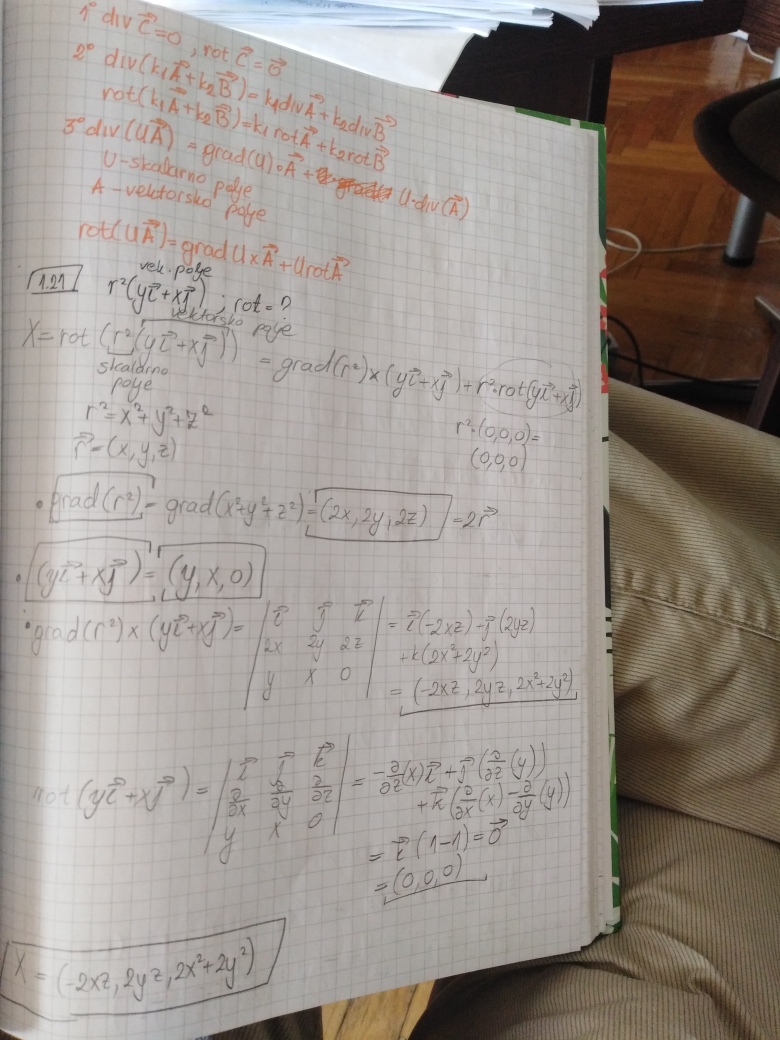 1° div C⃗=0, rot C⃗=0⃗
2° div(k₁A⃗+k₂B⃗)=k₁divA⃗+k₂divB⃗
rot(k₁A⃗+k₂B⃗)=k₁rotA⃗+k₂rotB⃗
3° div(UA⃗) = grad(U)∘A⃗ + U·div(A⃗)
U-skalarno polje
A-vektorsko polje
rot(UA⃗)=gradU×A⃗+UrotA⃗
vek. polje
1.21 r²(yi⃗+xj⃗), rot=?
vektorsko polje
X=rot(r²(yi⃗+xj⃗)) = grad(r²)×(yi⃗+xj⃗)+r²·rot(yi⃗+xj⃗)
skalarno polje
r²·(0,0,0)=
(0,0,0)
r²=x²+y²+z²
r⃗=(x,y,z)
• grad(r²)= grad(x²+y²+z²)=(2x,2y,2z) =2r⃗
• (yi⃗+xj⃗)=(y,x,0)
• grad(r²)×(yi⃗+xj⃗)= | i⃗ j⃗ k⃗ | = i⃗(-2xz)-j⃗(2yz)
| 2x 2y 2z | +k(2x²+2y²)
| y x 0 | = (-2xz, 2yz, 2x²+2y²)
rot(yi⃗+xj⃗)= | i⃗ j⃗ k⃗ | = -∂/∂z(x)i⃗+j⃗(∂/∂z(y))
| ∂/∂x ∂/∂y ∂/∂z | +k⃗(∂/∂x(x)-∂/∂y(y))
| y x 0 |
= k⃗(1-1)=0⃗
=(0,0,0)
X = (-2xz, 2yz, 2x²+2y²)